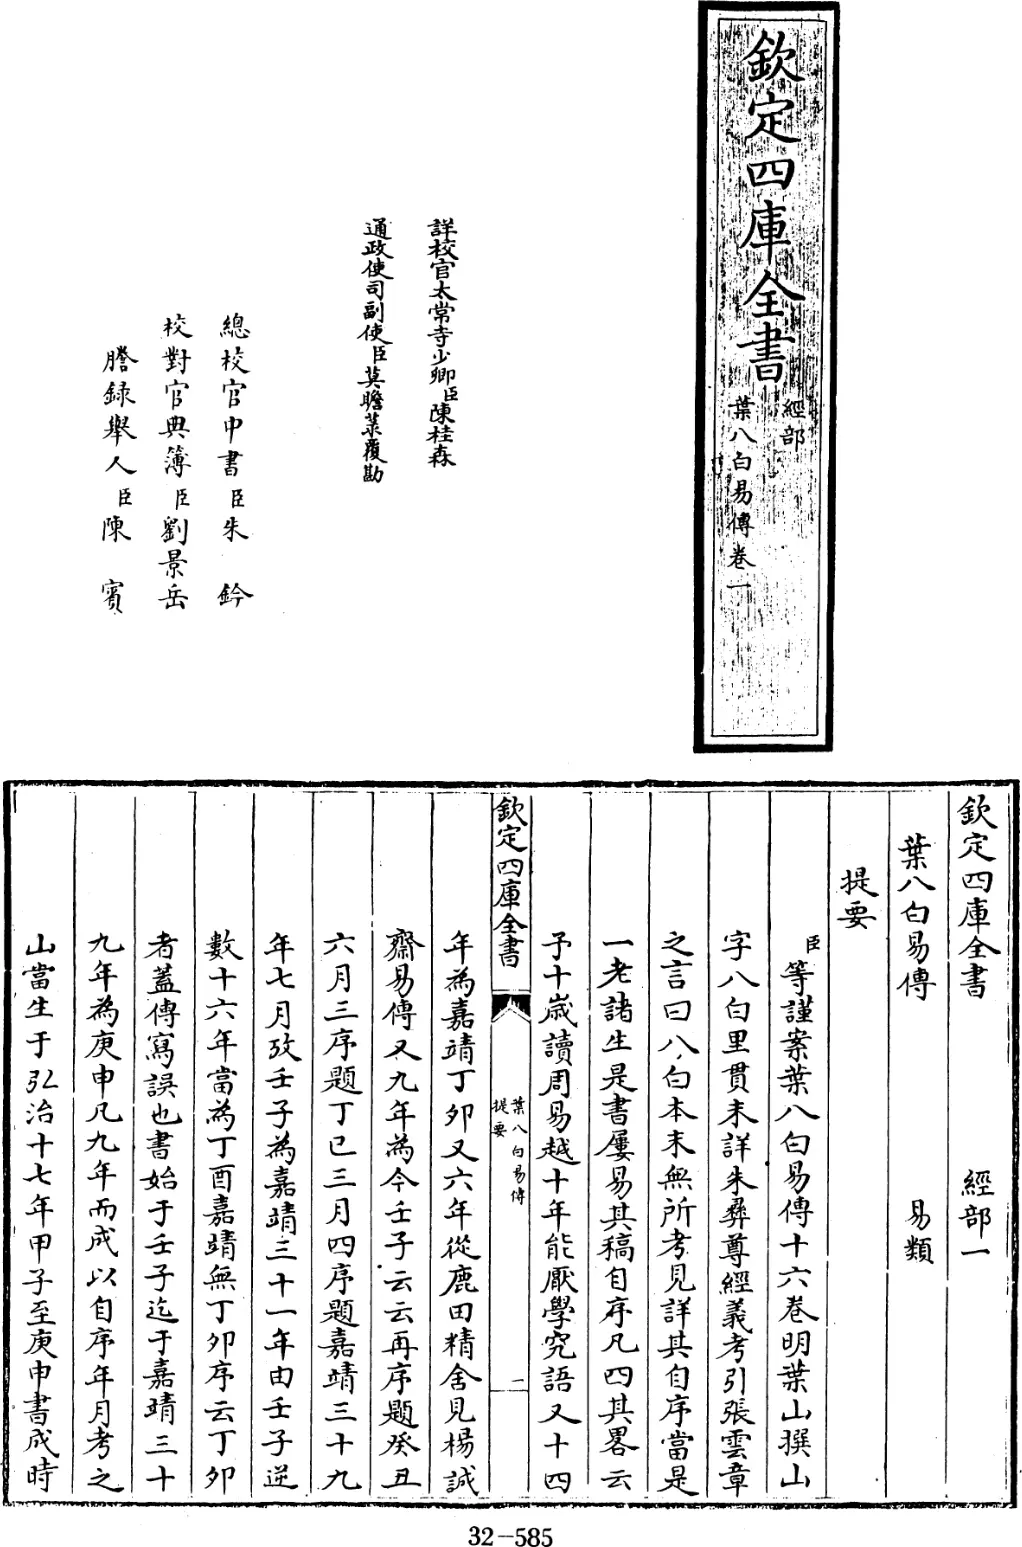 欽定四庫全書
經部
葉八白易傳卷一
詳校官太常寺少卿臣陳桂森
通政使司副使臣莫瞻菉覆勘
總校官中書臣朱鈐
校對官典簿臣劉景岳
謄錄舉人臣陳賓
欽定四庫全書 經部一
葉八白易傳 易類
提要
臣等謹案葉八白易傳十六卷明葉山撰山
字八白里貫未詳朱彝尊經義考引張雲章
之言曰八白本末無所考見詳其自序當是
一老諸生是書屢易其稿自序凡四其畧云
予十歲讀周易越十年能厭學究語又十四
欽定四庫全書
葉八白易傳
提要
一
年為嘉靖丁卯又六年從鹿田精舍見楊誠
齋易傳又九年為今壬子云云再序題癸丑
六月三序題丁巳三月四序題嘉靖三十九
年七月攷壬子為嘉靖三十一年由壬子逆
數十六年當為丁酉嘉靖無丁卯序云丁卯
者蓋傳寫誤也書始于壬子迄于嘉靖三十
九年為庚申凡九年而成以自序年月考之
山當生于弘治十七年甲子至庚申書成時
32-585